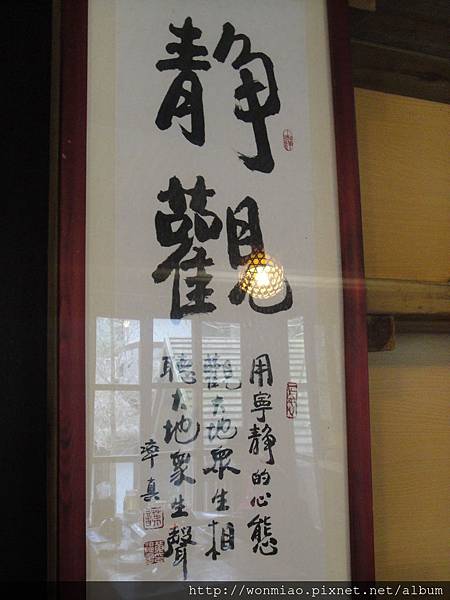 靜觀
用寧靜的心態
觀大地眾生相
聽大地眾生聲
率真
http://wonmiao.pixnet.net/album